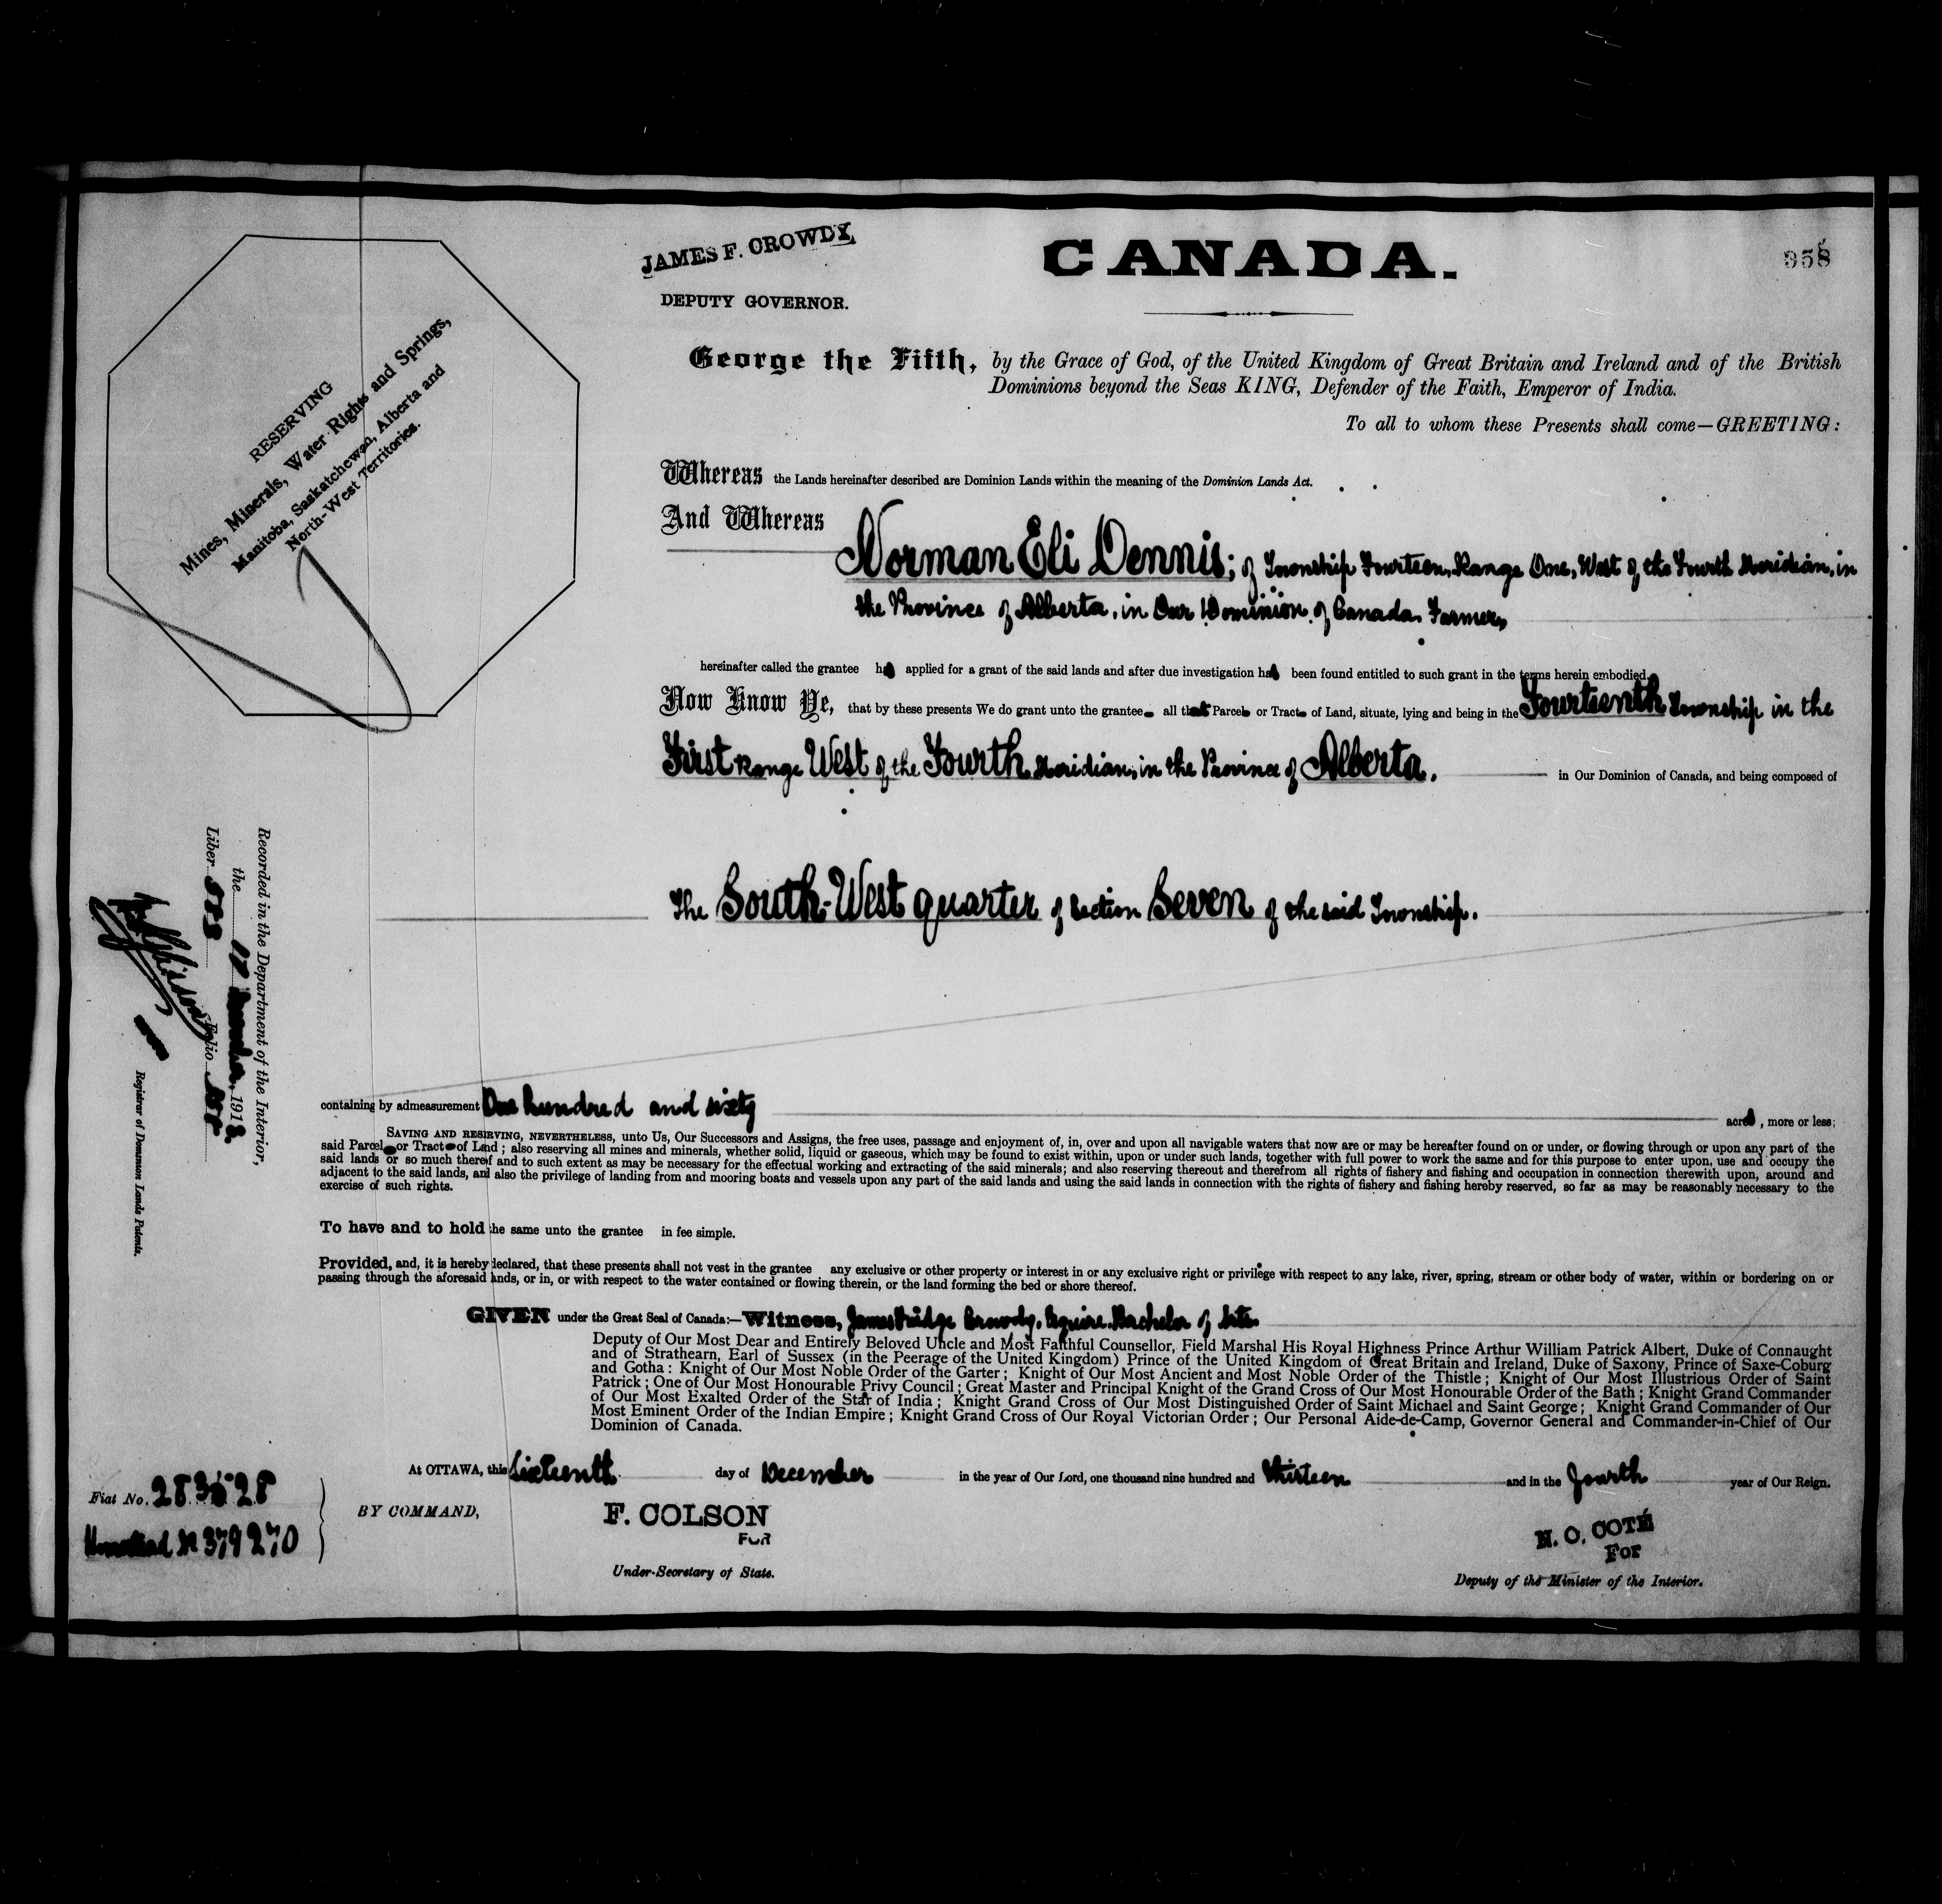 JAMES F. CROWDY,
DEPUTY GOVERNOR.
CANADA.
358
George the Fifth, by the Grace of God, of the United Kingdom of Great Britain and Ireland and of the British
Dominions beyond the Seas KING, Defender of the Faith, Emperor of India.
To all to whom these Presents shall come—GREETING:
RESERVING
Mines, Minerals, Water Rights and Springs,
Manitoba, Saskatchewan, Alberta and
North-West Territories.
Whereas the Lands hereinafter described are Dominion Lands within the meaning of the Dominion Lands Act.
And Whereas
Norman Eli Dennis; of Township Fourteen, Range One, West of the Fourth Meridian, in
the Province of Alberta, in Our Dominion of Canada, Farmer,
hereinafter called the grantee has applied for a grant of the said lands and after due investigation has been found entitled to such grant in the terms herein embodied.
Now Know Ye, that by these presents We do grant unto the grantee all that Parcel or Tract of Land, situate, lying and being in the Fourteenth Township in the
First Range West of the Fourth Meridian, in the Province of Alberta. in Our Dominion of Canada, and being composed of
The South-West quarter of Section Seven of the said Township.
Recorded in the Department of the Interior,
the 17 December, 1913
Liber Folio
Registrar of Dominion Lands Patents.
containing by admeasurement One hundred and sixty acres, more or less;
SAVING AND RESERVING, NEVERTHELESS, unto Us, Our Successors and Assigns, the free uses, passage and enjoyment of, in, over and upon all navigable waters that now are or may be hereafter found on or under, or flowing through or upon any part of the
said Parcel or Tract of Land; also reserving all mines and minerals, whether solid, liquid or gaseous, which may be found to exist within, upon or under such lands, together with full power to work the same and for this purpose to enter upon, use and occupy the
said lands or so much thereof and to such extent as may be necessary for the effectual working and extracting of the said minerals; and also reserving thereout and therefrom all rights of fishery and fishing and occupation in connection therewith upon, around and
adjacent to the said lands, and also the privilege of landing from and mooring boats and vessels upon any part of the said lands and using the said lands in connection with the rights of fishery and fishing hereby reserved, so far as may be reasonably necessary to the
exercise of such rights.
To have and to hold the same unto the grantee in fee simple.
Provided, and, it is hereby declared, that these presents shall not vest in the grantee any exclusive or other property or interest in or any exclusive right or privilege with respect to any lake, river, spring, stream or other body of water, within or bordering on or
passing through the aforesaid lands, or in, or with respect to the water contained or flowing therein, or the land forming the bed or shore thereof.
GIVEN under the Great Seal of Canada:—Witness, James Fridge Crowdy, Esquire, Bachelor of Arts.
Deputy of Our Most Dear and Entirely Beloved Uncle and Most Faithful Counsellor, Field Marshal His Royal Highness Prince Arthur William Patrick Albert, Duke of Connaught
and of Strathearn, Earl of Sussex (in the Peerage of the United Kingdom) Prince of the United Kingdom of Great Britain and Ireland, Duke of Saxony, Prince of Saxe-Coburg
and Gotha: Knight of Our Most Noble Order of the Garter; Knight of Our Most Ancient and Most Noble Order of the Thistle; Knight of Our Most Illustrious Order of Saint
Patrick; One of Our Most Honourable Privy Council; Great Master and Principal Knight of the Grand Cross of Our Most Honourable Order of the Bath; Knight Grand Commander
of Our Most Exalted Order of the Star of India; Knight Grand Cross of Our Most Distinguished Order of Saint Michael and Saint George; Knight Grand Commander of Our
Most Eminent Order of the Indian Empire; Knight Grand Cross of Our Royal Victorian Order; Our Personal Aide-de-Camp, Governor General and Commander-in-Chief of Our
Dominion of Canada.
At OTTAWA, this Sixteenth day of December in the year of Our Lord, one thousand nine hundred and thirteen and in the fourth year of Our Reign.
Fiat No. 283528
Homestead No 379270
BY COMMAND,
F. COLSON
FOR
Under-Secretary of State.
N. O. COTÉ
For
Deputy of the Minister of the Interior.